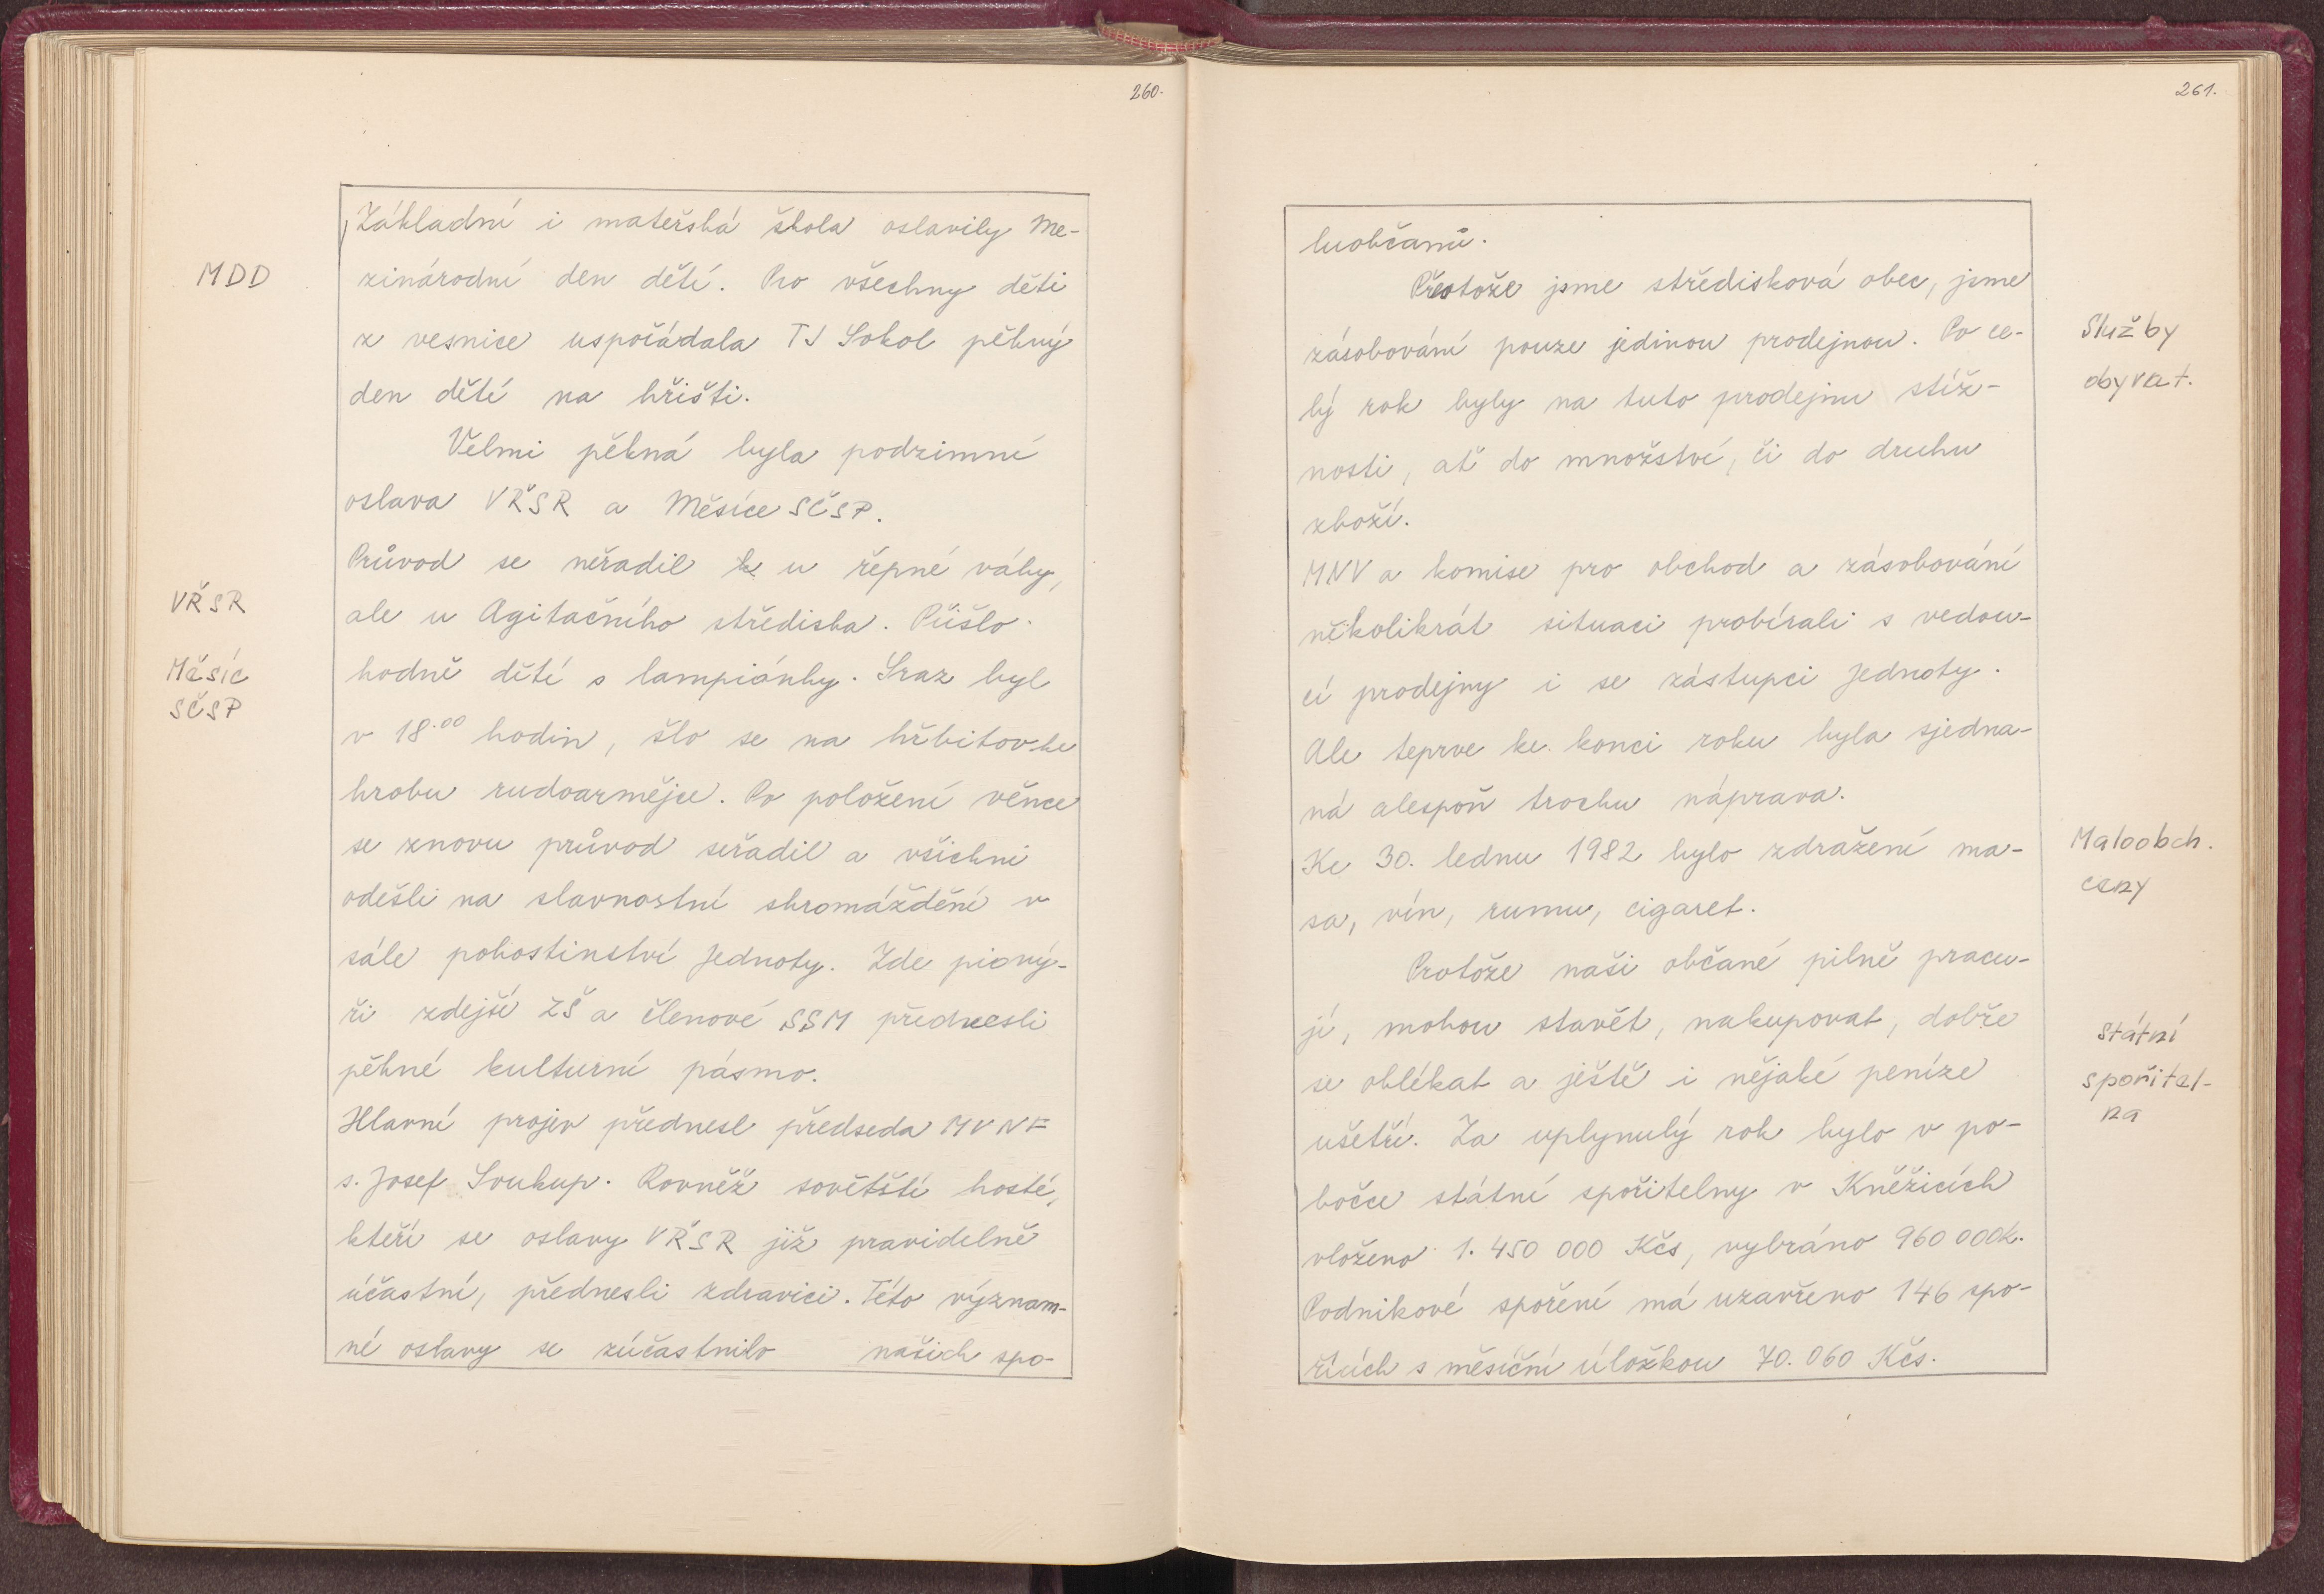 260.
Základní i mateřská škola oslavily Me-
MDD
zinárodní den dětí. Pro všechny děti
z vesnice uspořádala TJ Sokol pěkný
den dětí na hřišti.
Velmi pěkná byla podzimní
oslava VŘSR a Měsíce SČSP.
Průvod se neřadil u řepné váhy,
VŘSR
ale u Agitačního střediska. Přišlo
Měsíc
hodně dětí s lampiónky. Sraz byl
SČSP
v 18.00 hodin, šlo se na hřbitov ke
hrobu rudoarmějce. Po položení věnce
se znovu průvod seřadil a všichni
odešli na slavnostní shromáždění v
sále pohostinství Jednoty. Zde pioný-
ři zdejší ZŠ a členové SSM přednesli
pěkné kulturní pásmo.
Hlavní projev přednesl předseda MVNF
s. Josef Soukup. Rovněž sovětští hosté,
kteří se oslavy VŘSR již pravidelně
účastní, přednesli zdravici. Této význam-
né oslavy se zúčastnilo našich spo-
261.
luobčanů.
Protože jsme středisková obec, jsme
Služby
zásobování pouze jedinou prodejnou. Po ce-
obyvat.
lý rok byly na tuto prodejnu stíž-
nosti, ať do množství, či do druhu
zboží.
MNV a komise pro obchod a zásobování
několikrát situaci probírali s vedou-
cí prodejny i se zástupci Jednoty.
Ale teprve ke konci roku byla sjedna-
ná alespoň trochu náprava.
Maloobch.
Ke 30. lednu 1982 bylo zdražení ma-
ceny
sa, vín, rumu, cigaret.
Protože naši občané pilně pracu-
jí, mohou stavět, nakupovat, dobře
Státní
se oblékat a ještě i nějaké peníze
spořitel-
na
ušetří. Za uplynulý rok bylo v po-
bočce státní spořitelny v Kněžicích
vloženo 1.450 000 Kčs, vybráno 960 000K.
Podnikové spoření má uzavřeno 146 spo-
řících s měsíční úložkou 70.060 Kčs.